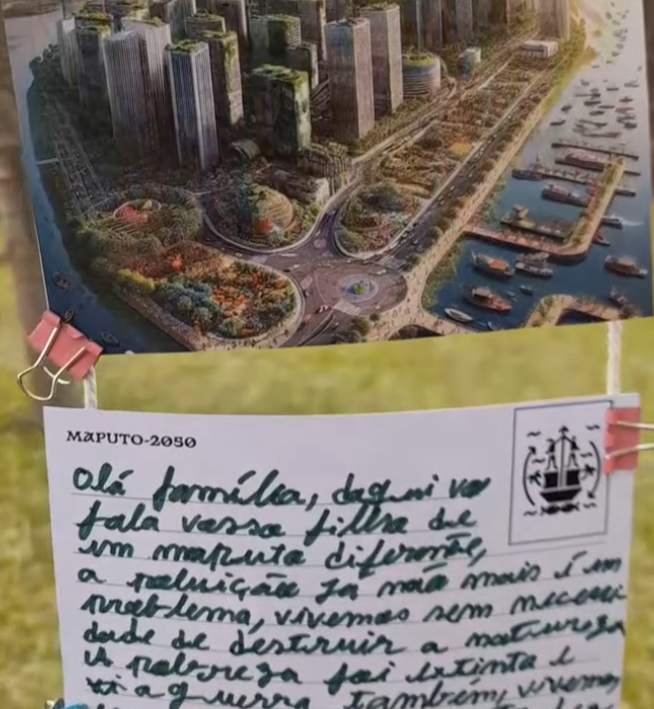 MAPUTO-2050
Olá família, daqui vos
fala vossa filha de
um maputo diferente,
a poluição já não mais é um
problema, vivemos sem necessi
dade de destruir a natureza
a pobreza foi extinta e
a guerra também, vivemos